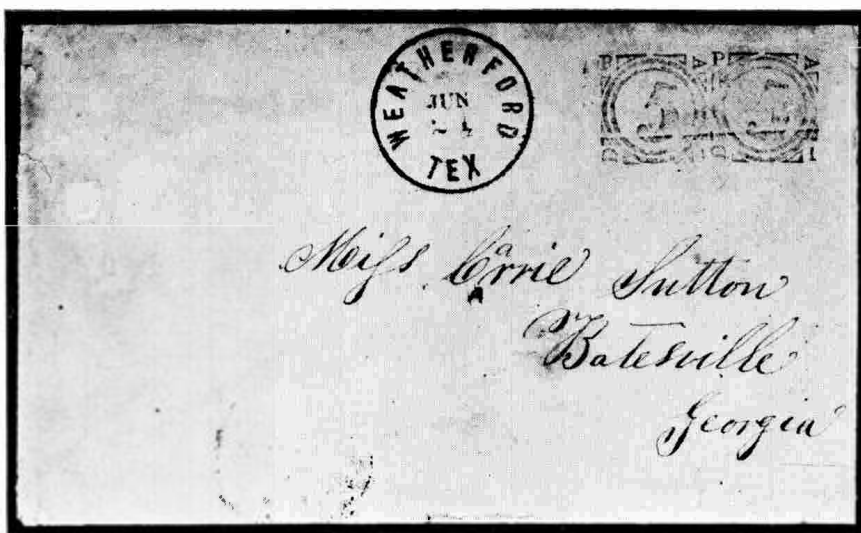 WEATHERFORD
JUN
TEX
P A P A
5 5
D I D I
Miss Carrie Sutton
Batesville
Georgia